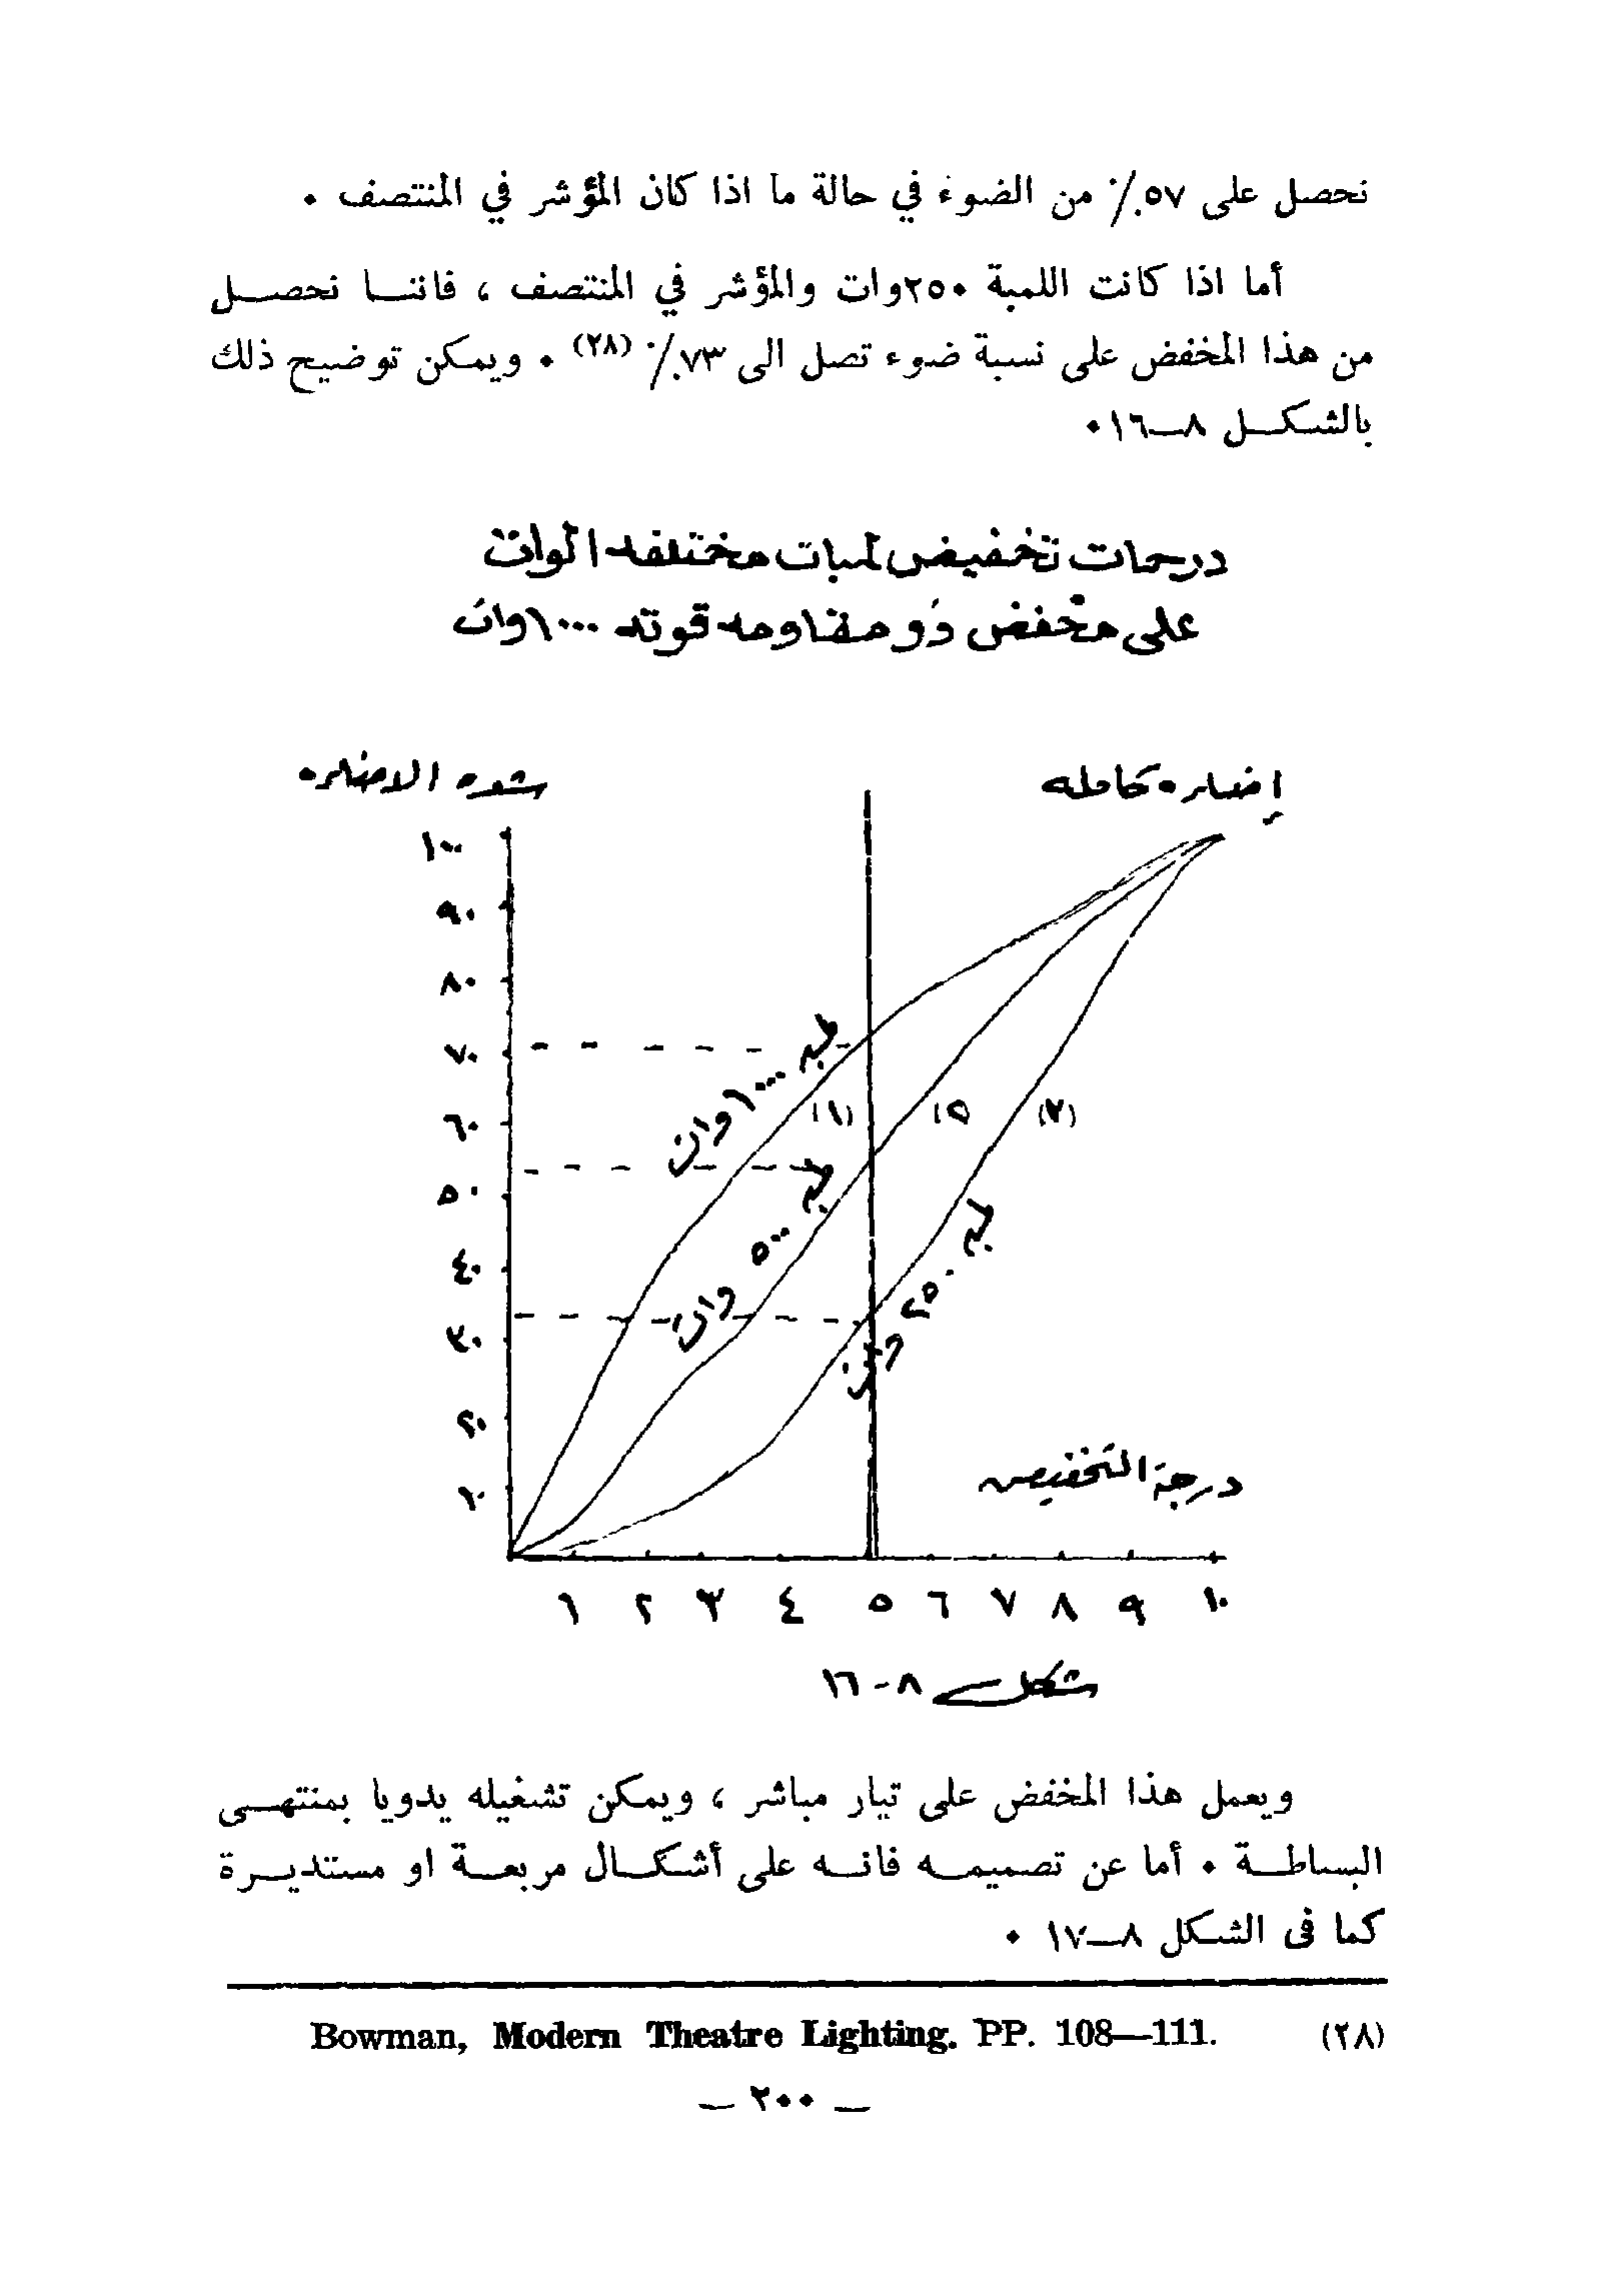 نحصل على ٥٧٪ من الضوء في حالة ما اذا كان المؤشر في المنتصف ٠
أما اذا كانت اللمبة ٢٥٠وات والمؤشر في المنتصف ، فاننا نحصل
من هذا المخفض على نسبة ضوء تصل الى ٧٣٪ (٢٨) ٠ ويمكن توضيح ذلك
بالشكل ٨ـ١٦٠
درجات تخفيض لمبات مختلفه الوات
على مخفض ذو مقاومه قوته ١٠٠٠وات
شده الاضاءه
إضاءه كامله
١٠٠
٩٠
٨٠
٧٠
٦٠
٥٠
٤٠
٣٠
٢٠
١٠
لمبه ١٠٠٠ وات
(١)
لمبه ٥٠٠ وات
(٢)
(٣)
لمبه ٢٥٠ وات
درجة التخفيض
١ ٢ ٣ ٤ ٥ ٦ ٧ ٨ ٩ ١٠
شكل ٨-١٦
ويعمل هذا المخفض على تيار مباشر ، ويمكن تشغيله يدويا بمنتهى
البساطة ٠ أما عن تصميمه فانه على أشكال مربعة او مستديرة
كما فى الشكل ٨ـ١٧ ٠
(٢٨) Bowman, Modern Theatre Lighting. PP. 108—111.
— ٢٠٠ —